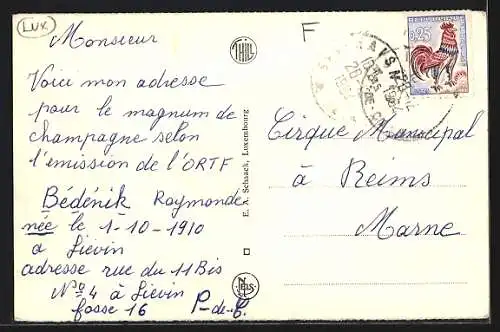 Lux.
Monsieur
Voici mon adresse
pour le magnum de
champagne selon
l'émission de l'ORTF
Bédénik Raymonde
née le 1-10-1910
à Liévin
adresse rue du 11 Bis
Nº 4 à Liévin
fosse 16 P-de-C.
THILL
E. A. Schaack, Luxembourg
Nels
F
0,25
Cirque Municipal
à Reims
Marne